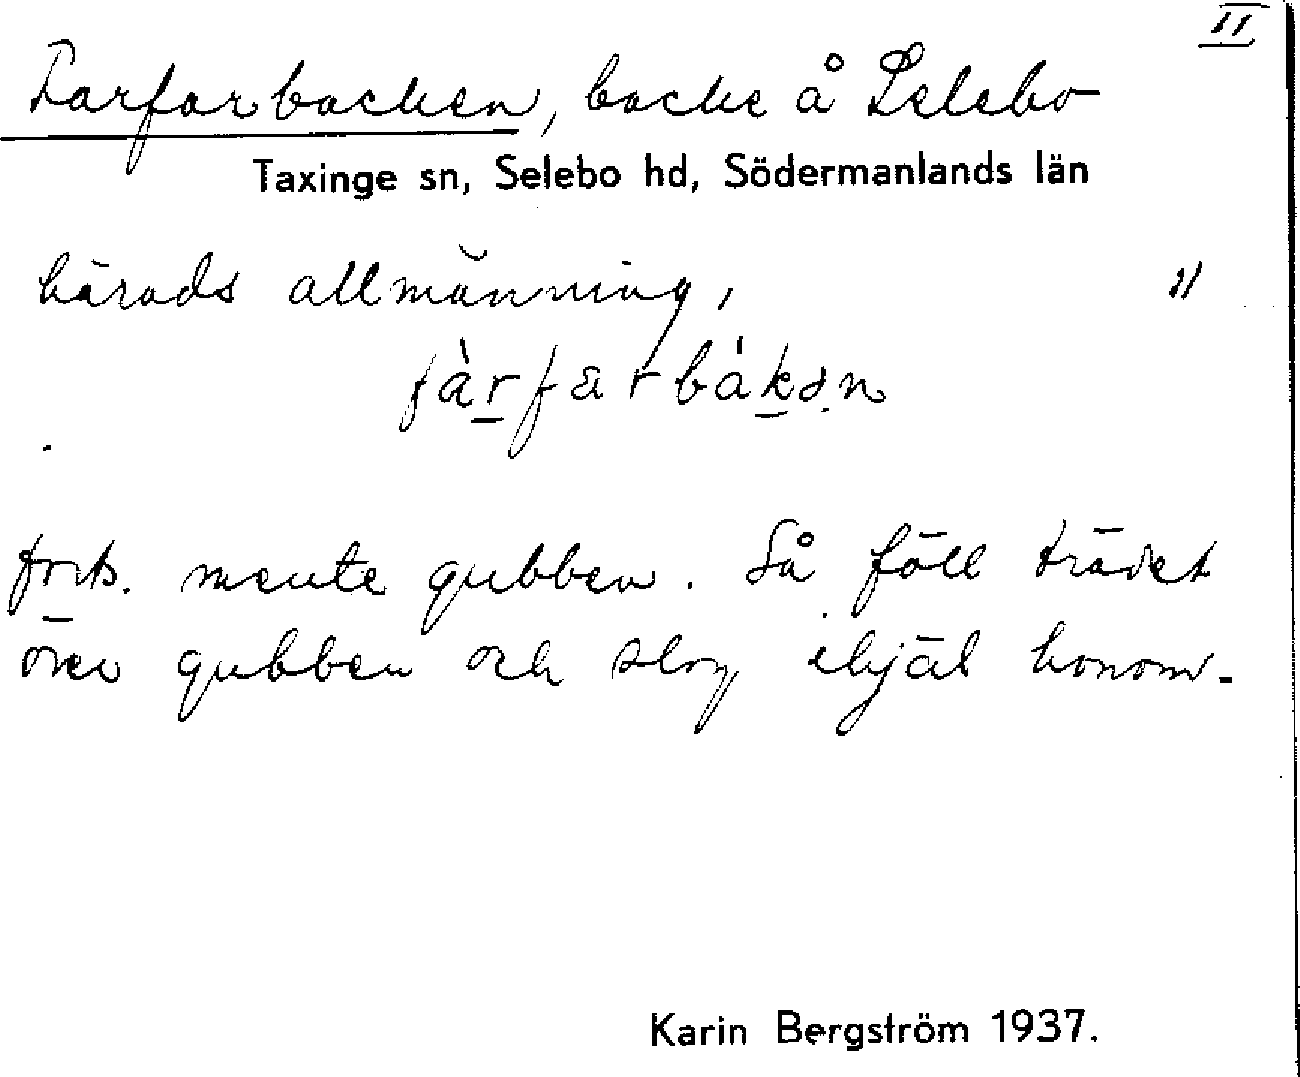 II
Farfarbacken, backe å Selebo
Taxinge sn, Selebo hd, Södermanlands län
härads allmänning, 11
fàrfarbákən
forts. mente gubben. Så föll trädet
över gubben och slog ihjäl honom.
Karin Bergström 1937.